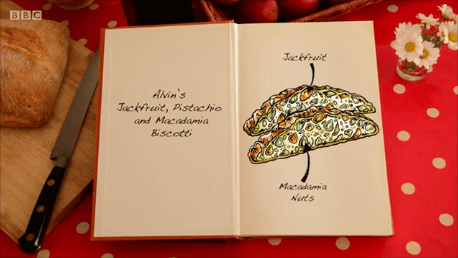 BBC
Alvin's
Jackfruit, Pistachio
and Macadamia
Biscotti
Jackfruit
Macadamia
Nuts